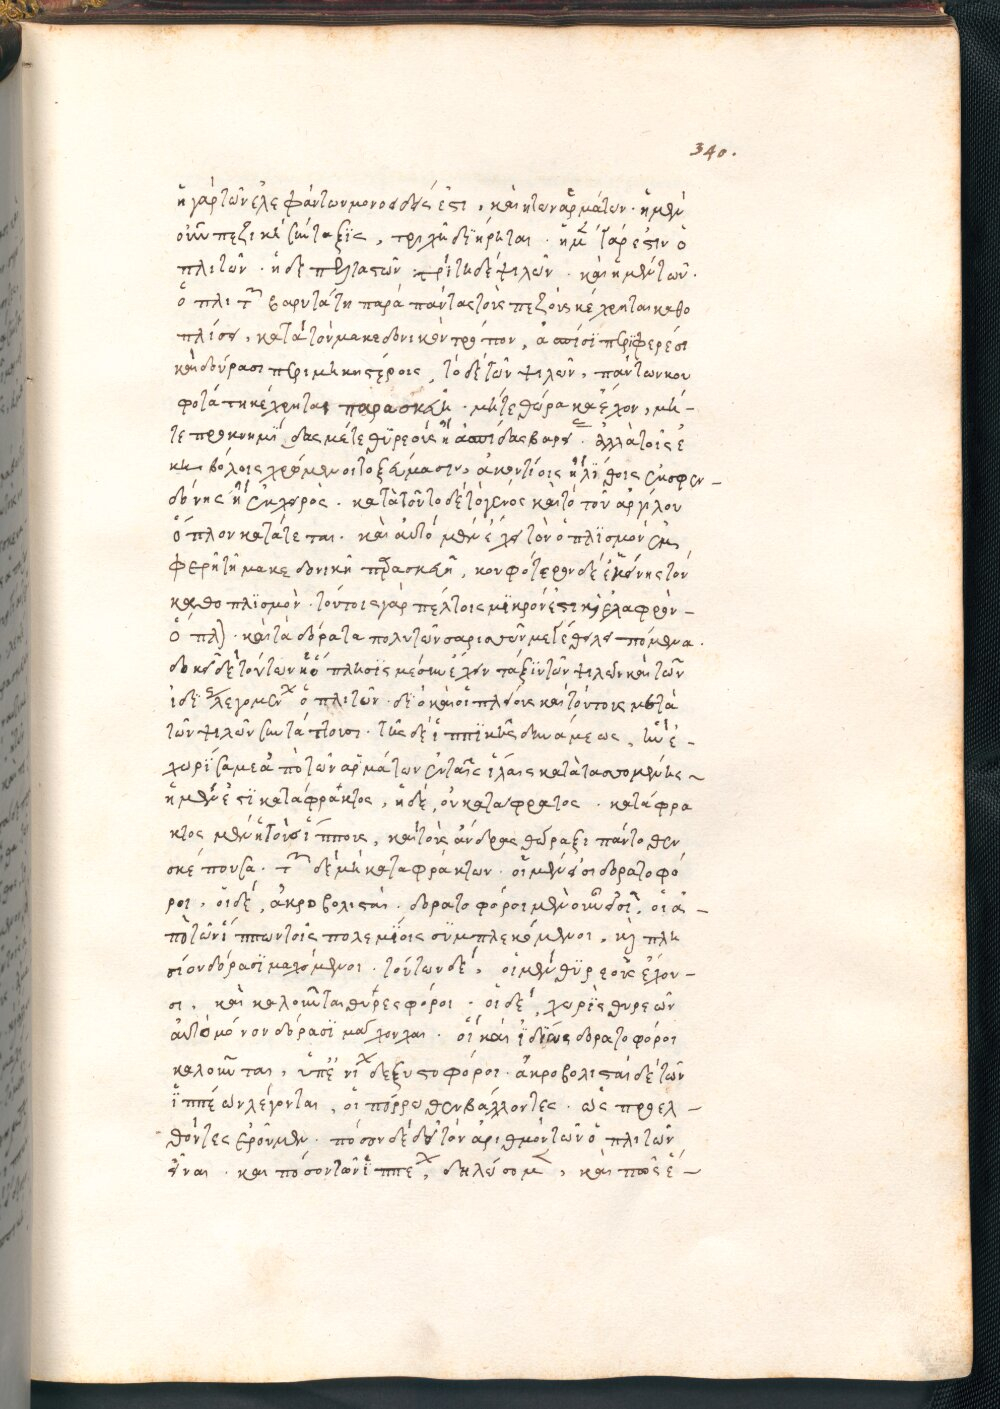 340.
ἡ γὰρ τῶν ἐλεφάντων μονοειδής ἐστι, καὶ ἡ τῶν ἁρμάτων· ἡ μὲν
οὖν πεζικὴ σύνταξις, τριχῆ διῄρηται· ἡ μ γάρ ἐστιν ὁ
πλιτῶν· ἡ δὲ πελταστῶν· τρίτη δὲ ψιλῶν· καὶ ἡ μὲν τῶν
ὁπλιτ βαρυτάτη παρὰ πάντας τοὺς πεζοὺς κέχρηται καθο
πλίσει, κατὰ τὸν μακεδονικὸν τρόπον, ἀσπίσι περιφερέσι
καὶ δόρασι περιμηκεστέροις, τὸ δὲ τῶν ψιλῶν, πάντων κου
φοτάτη κέχρηται παρασκευῆ· μήτε θώρακα ἔχον, μή-
τε προκνημῖδας μήτε θυρεοὺς ἢ ἀσπίδας βαρείας· ἀλλὰ τοῖς ἑ
κηβόλοις χρώμενοι τοξεύμασιν, ἀκοντίοις ἢ λίθοις ἐκ σφεν-
δόνης ἢ ἐκ χειρός· κατὰ τοῦτο δὲ τὸ γένος καὶ τὸ τοῦ ἀργίλου
ὅπλον κατάτεται· καὶ αὐτὸ μὲν ἔχει τὸν ὁπλισμὸν ἐμ
φερῆ τῆ μακεδονικῆ παρασκευῆ, κουφότερον δὲ ἐκείνης τὸν
καθοπλισμὸν· τούτοις γὰρ πέλτοις μικρόν ἐστι καὶ ἐλαφρὸν-
ὅπλ)· καὶ τὰ δόρατα πολὺ τῶν σαρισσῶν μεγέθει λειπόμενα·
δοκεῖ δὲ τούτων ἡ ὅπλησις μέσην ἔχειν τάξιν τῶν ψιλῶν καὶ τῶν
ἰδι λεγομεν ὁπλιτῶν· διὸ καὶ οἱ πλείους καὶ τούτους μετὰ
τῶν ψιλῶν συντάττουσι· τῆς δὲ ἱππικῆς δυνάμεως, ἣν ἐ-
χωρίσαμεν ἀπὸ τῶν ἁρμάτων ἐν ταῖς ἴλαις κατατασσομένης-
ἡ μέν ἐστι κατάφρακτος, ἡ δὲ, οὐ κατάφρατος· κατάφρα
κτος μὲν ἡ τοὺς ἵππους, καὶ τοὺς ἄνδρας θώραξι πάντοθεν
σκέπουσα· τ δὲ μὴ καταφράκτων· οἱ μέν εἰσι δορατοφό
ροι, οἱ δὲ, ἀκροβολισταὶ· δορατοφόροι μὲν οὖν εἰσὶ, οἱ ἀ-
πὸ τῶν ἵππων τοῖς πολεμίοις συμπλεκόμενοι, καὶ πλη
σίον δόρασι μαχόμενοι· τούτων δὲ, οἱ μὲν θυρεοὺς ἔχου-
σι, καὶ καλοῦνται θυρεοφόροι· οἱ δὲ, χωρὶς θυρεῶν
αὐτὸ μόνον δόρασι μάχονται· οἳ καὶ ἰδίως δορατοφόροι
καλοῦνται, ὑπ ἐνι δὲ ξυστοφόροι· ἀκροβολισταὶ δὲ τῶν
ἱππέων λέγονται, οἱ πόρρωθεν βάλλοντες· ὡς προελ-
θόντες ἐροῦμεν· πόσον δὲ δεῖ τὸν ἀριθμὸν τῶν ὁπλιτῶν
εἶναι· καὶ πόσον τῶν ἱππε, δηλώσομ, καὶ πῶς ἑ-